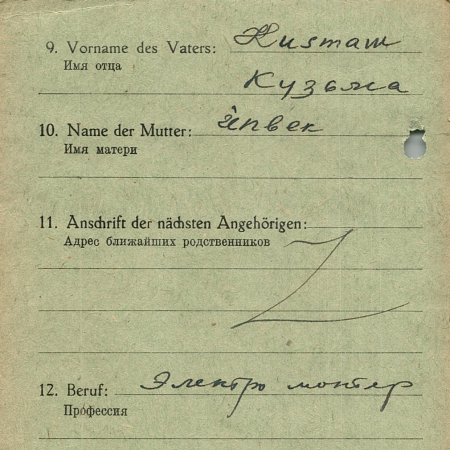 9. Vorname des Vaters:
Имя отца
Кузьма
10. Name der Mutter:
Имя матери
11. Anschrift der nächsten Angehörigen:
Адрес ближайших родственников
12. Beruf: Электро монтер
Профессия